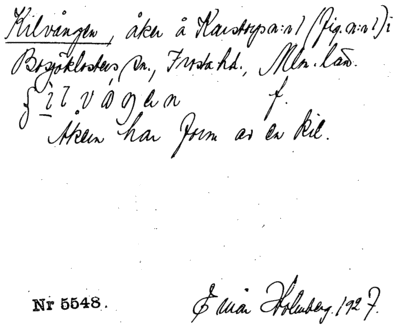 Kilvången, åker å Karstorps n:o 1 (fig. n:o 1) i
Bosjöklosters sn., Frosta hd., Mlm. län.
ʃ i l v å ŋ e n f.
Åkern har form av en kil.
Nr 5548. Einar Holmberg. 1927.